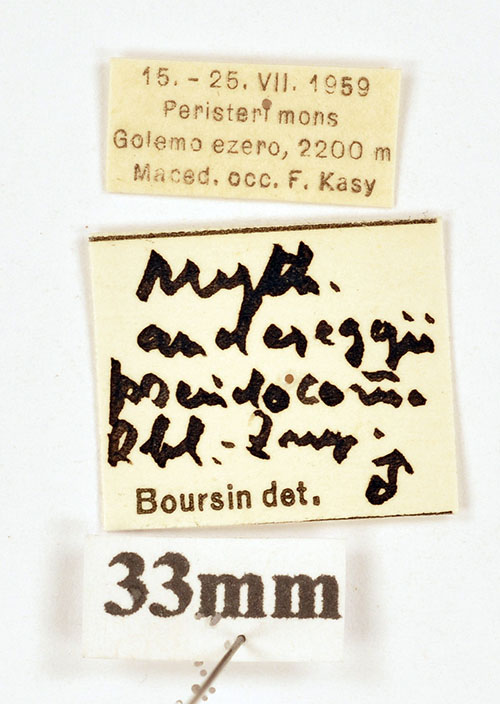 15. - 25. VII. 1959
Peristeri mons
Golemo ezero, 2200 m
Maced. occ. F. Kasy
Myth.
andereggii
Obl. - Zny. ♂
Boursin det.
33mm